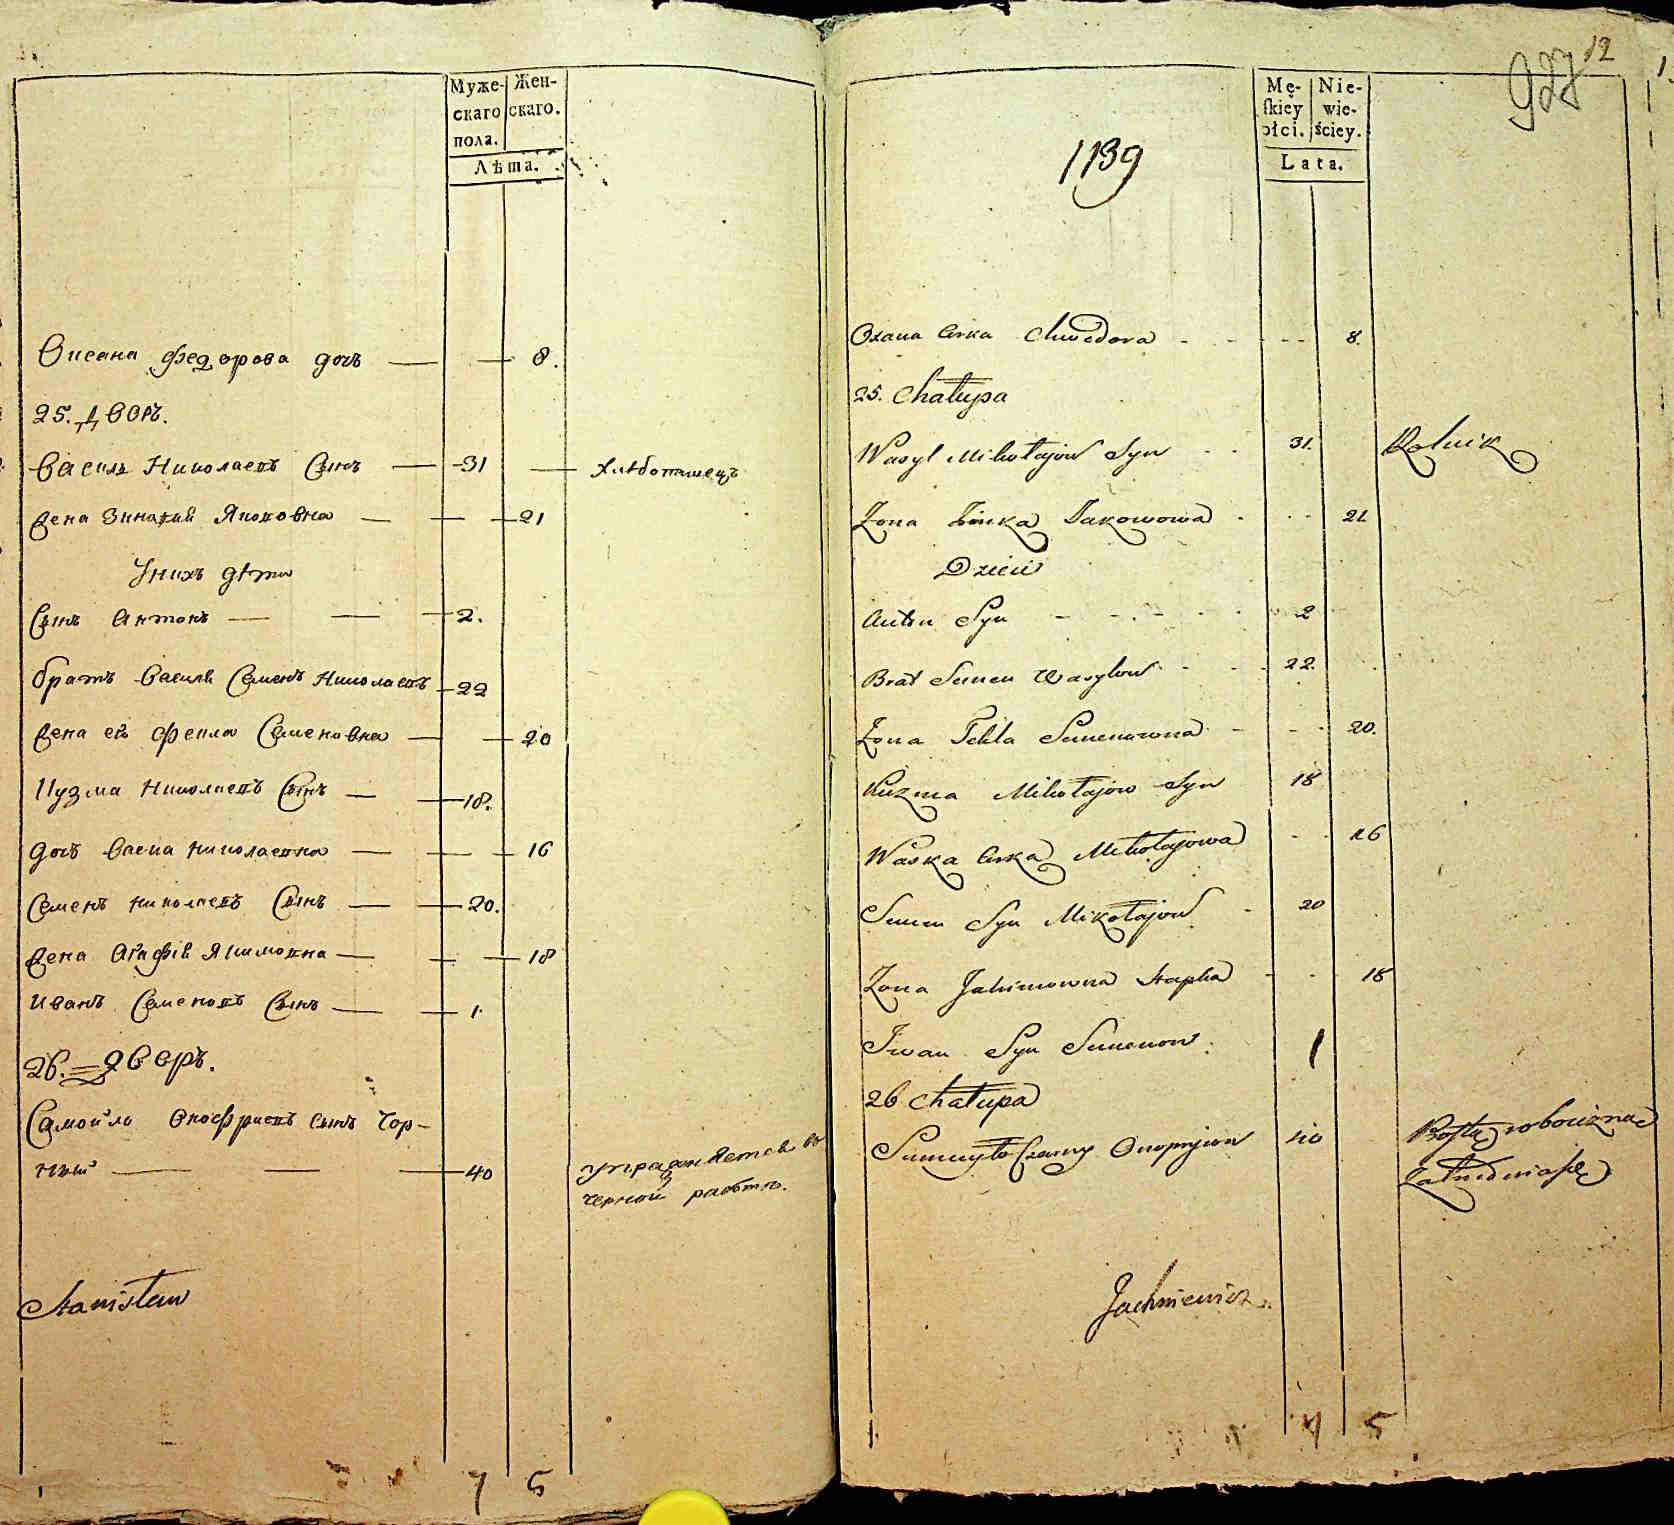 Муже-
скаго
пола.
Жен-
скаго.
Лѣта.
Оксана Федорова дочь 8.
25. Дворъ.
Василь Николаевъ Сынъ 31 Хлѣбопашецъ
Жена Зинакия Якововна 21
У нихъ дѣти
Сынъ Антонъ 2.
братъ Василя Семенъ Николаевъ 22
Жена его Фекла Семеновна 20
Кузма Николаевъ Сынъ 18.
дочь Васка Николаевна 16
Семенъ Николаевъ Сынъ 20.
Жена Агафія Якимовна 18
Иванъ Семеновъ Сынъ 1.
26. дворъ.
Самойло Онофриевъ Сынъ Чор-
ный 40 упражняется въ
черной работѣ.
Stanisław
7 5
12
927
1139
Mę-
ſkiey
płci.
Nie-
wie-
ściey.
Lata.
Oxana Crka Chwedora 8.
25. Chałupa
Wasyl Mikołajow Syn 31. Rolnik
Zona Zinka Jakowowa 21
Dzieci
Anton Syn 2
Brat Semen Wasylow 22.
Zona Tekla Semenowna 20.
Kuzma Mikołajow Syn 18
Waska Crka Mikołajowa 16
Semen Syn Mikołajow 20
Zona Jahimowna Hapka 18
Iwan Syn Semenow. 1
26 Chałupa
Samuyło Czarny Onopryiow 40 Roſtą robocizną
Zatrudnia ſię
Jachniewicz.
7 5